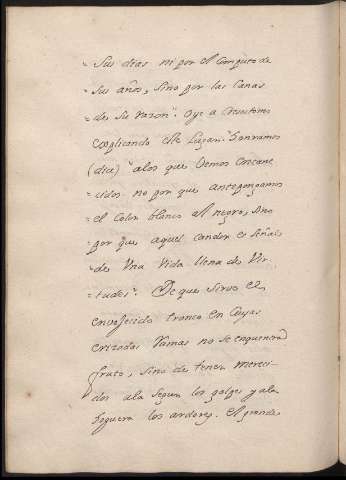 "Sus dias ni por el Computo de
"sus años, sino por las Canas
"de su razon". Oye a
explicando este Lugar. "Honramos
(dice) "a los que vemos encane-
"cidos no por que antepongamos
"el Color blanco al negro, sino
"por que aquel candor es señal
"de Una Vida llena de Vir-
"tudes". De que sirve el
envejecido tronco en Cuyas
erizadas Ramas no se enquentra
fruto, sino de tener mereci-
dos a la Segur los golpes y a la
hoguera los ardores. El grande